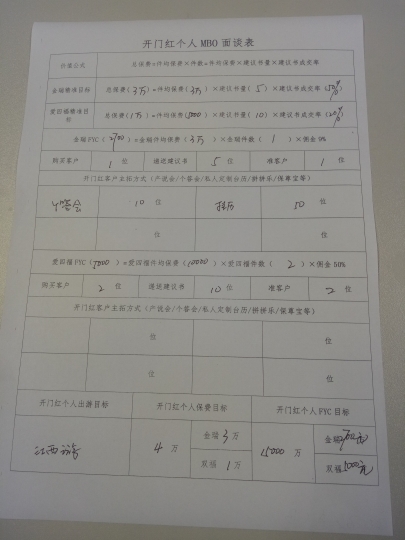 开门红个人 MBO 面谈表
价值公式 总保费=件均保费×件数=件均保费×建议书量×建议书成交率
金瑞雅项目标 总保费(3万)=件均保费(3万)×建议书量(5)×建议书成交率(
爱四福雅项目标 总保费(1万)=件均保费(5000)×建议书量(10)×建议书成交率(20%)
金瑞 FYC(2700)=金瑞件均保费(3万)×金瑞件数(1)×佣金 9%
购买客户 1 位 递送建议书 5 位 准客户 1 位
开门红客户主拓方式(产说会/个答会/私人定制台历/拼拼乐/保单宝等)
个答会 10 位 挂历 50 位
位 位
爱四福 FYC(5000)=爱四福件均保费(10000)×爱四福件数(2)×佣金 50%
购买客户 2 位 递送建议书 10 位 准客户 2 位
开门红客户主拓方式(产说会/个答会/私人定制台历/拼拼乐/保单宝等)
位 位
位 位
开门红个人出游目标 开门红个人保费目标 开门红个人 FYC 目标
江西 4 万 金瑞 3 万 15000 万 金瑞2700元
双福 1 万 双福5000元